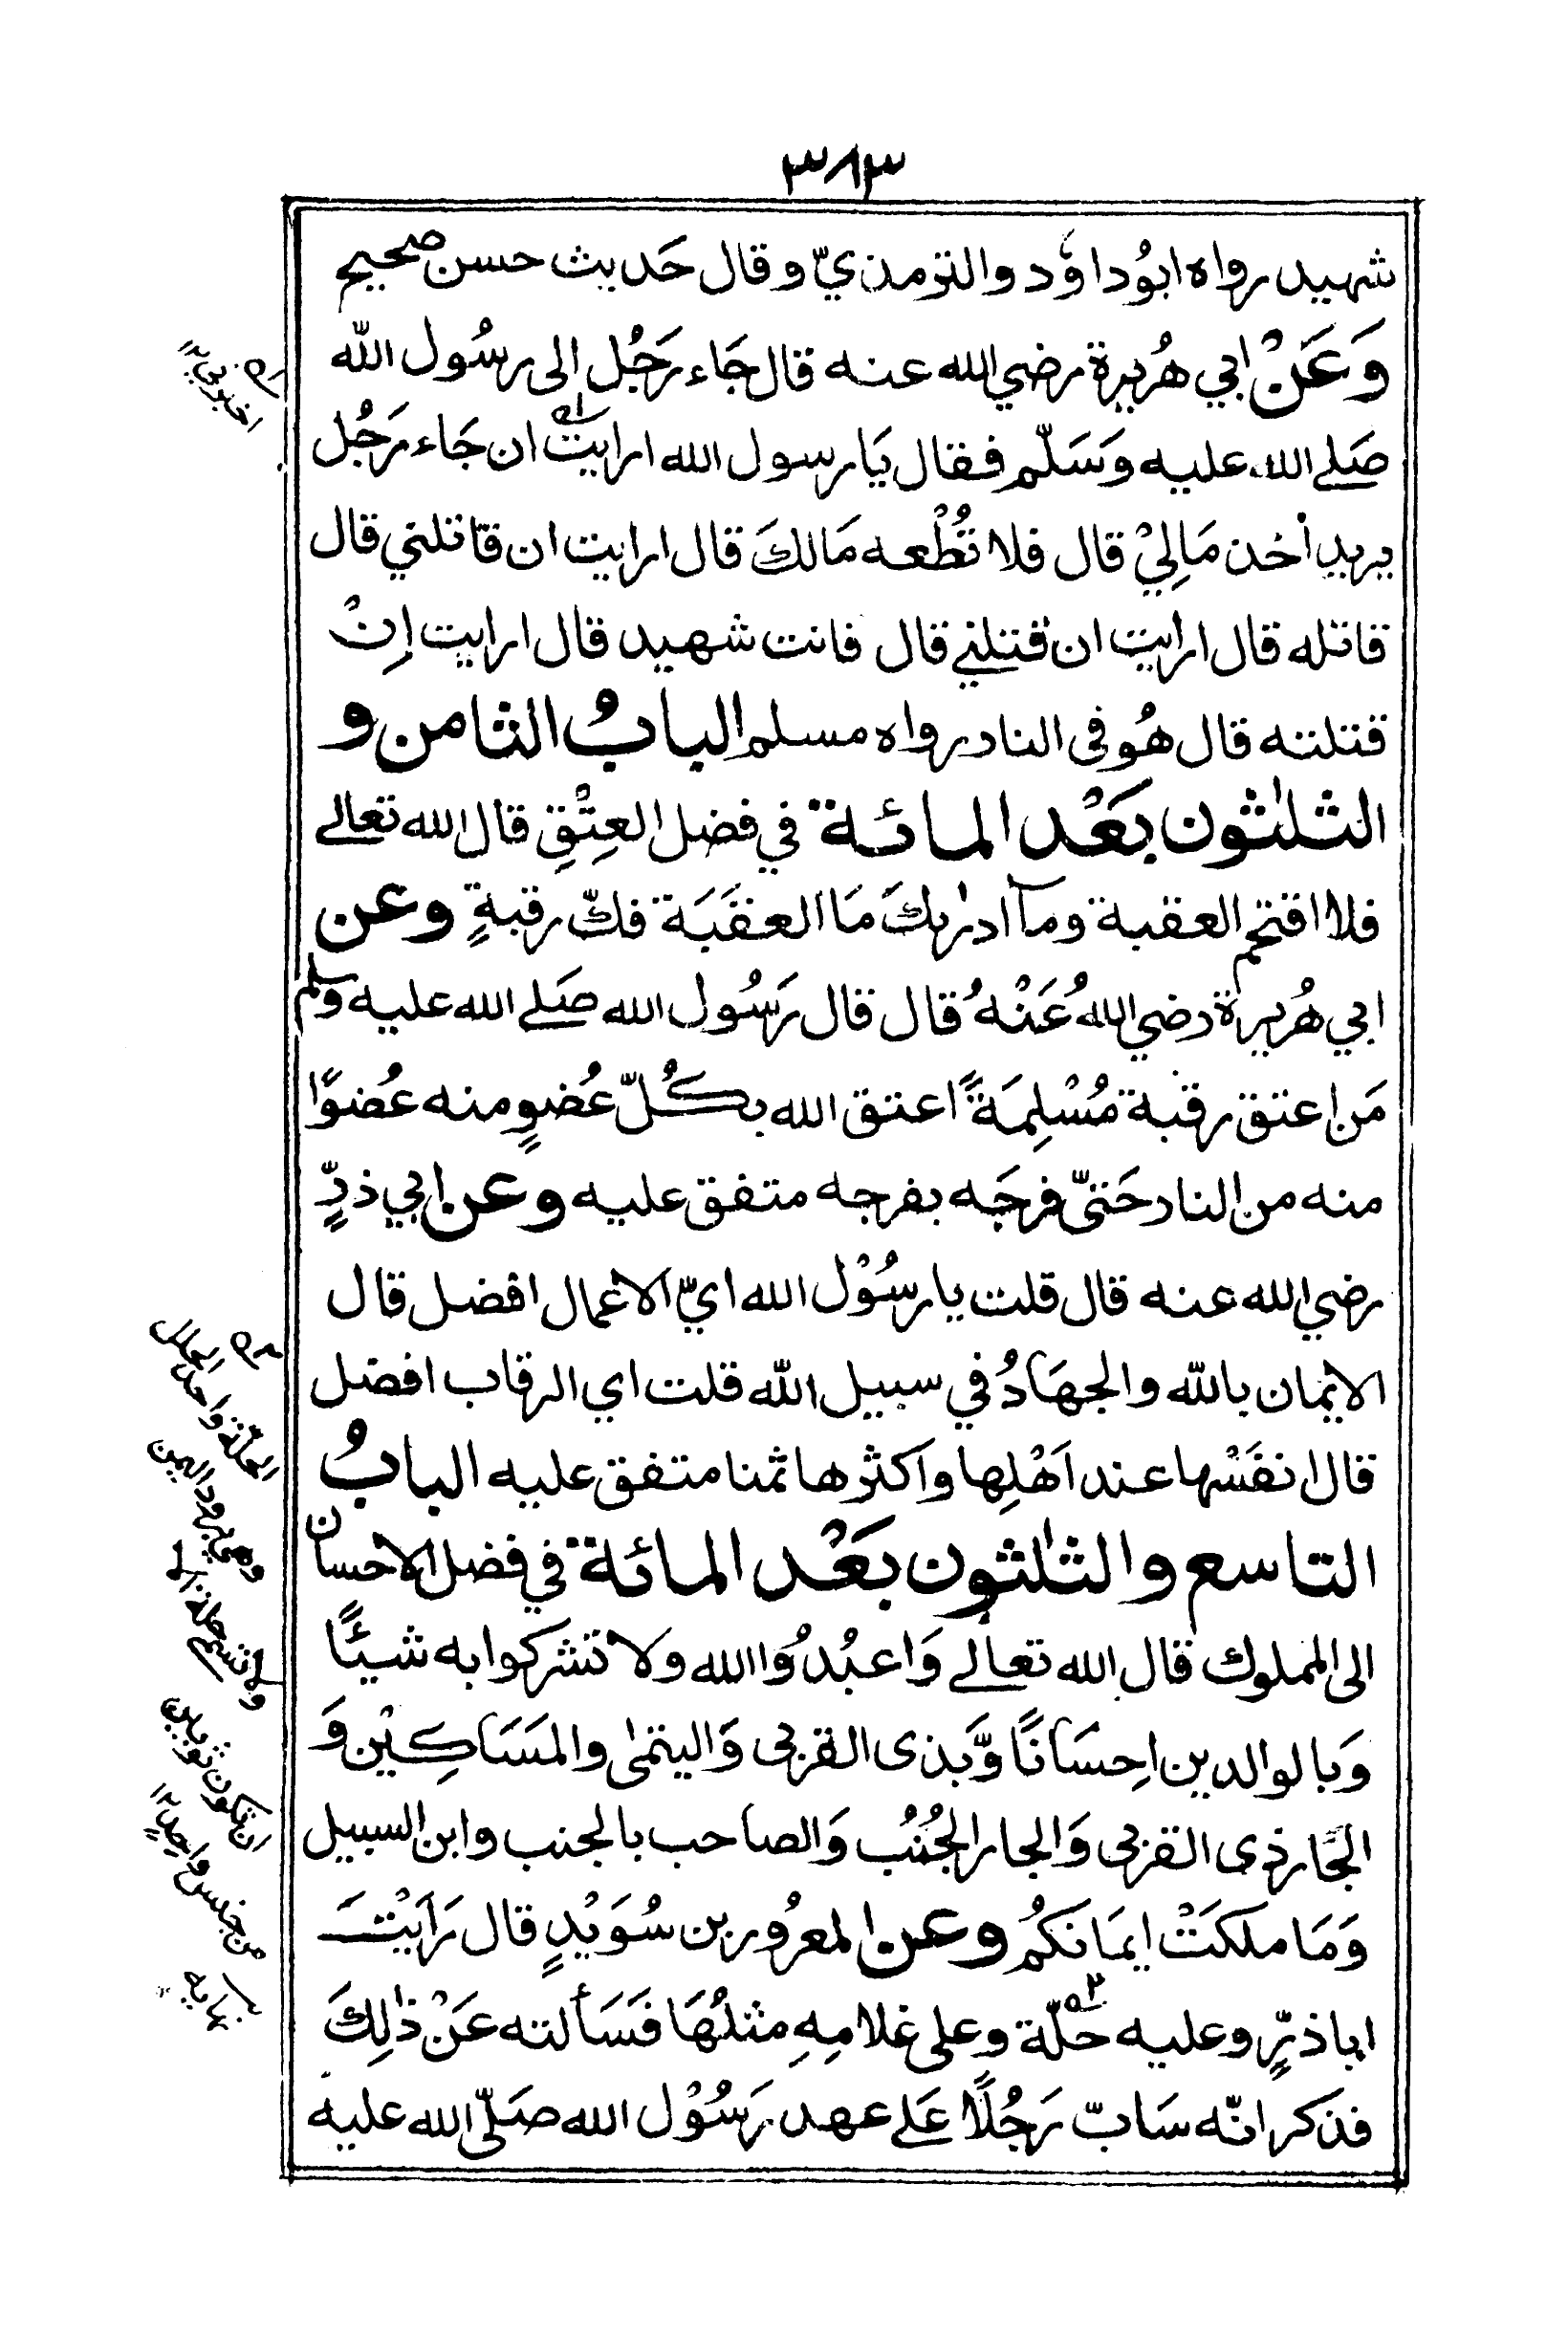 ٣٨٣
شهيد رواه ابوُداوٗد والترمذيّ وقال حَديث حسن صحيح
وَعَنْ ابي هُريرة رضي الله عنه قال جَاء رَجُل الى رسُول الله
صَلے الله عليه وَسَلّم فقال يَا رسول الله ارايت ان جَاء رَجُل
يريد أخذ مَالِيْ قال فلا تُعْطه مَالكَ قال ارايت ان قاتلني قال
قاتله قال ارايت ان قتلني قال فانت شهيد قال ارايت اِنْ
قتلته قال هُو فى النار رواه مسلم البابُ الثامن و
الثلٰثون بَعْد المائة في فضل العِتْقِ قال الله تعالے
فلا اقتحم العقبة ومآ ادرٰىكَ مَا العقَبَة فكّ رقبةٍ وعن
ابي هُريرة رضي اللهُ عَنْهُ قال قال رَسُول الله صَلے الله عليه وسلم
مَن اعتق رقبة مُسْلِمَةً اعتق الله بكُلّ عُضوٍ منه عُضوًا
منه من النار حَتىّ فرجَه بفرجه متفق عليه وعن ابي ذرٍّ
رضي الله عنه قال قلت يا رسُوْل الله ايّ الاعمال افضل قال
الايمان بالله والجهَادُ في سبيل الله قلت اي الرقاب افضل
قال انفَسْها عند اَهْلِها واكثرها ثمنا متفق عليه البابُ
التاسع والثلٰثون بَعْد المائة في فضل الاحسان
الى المملوك قال الله تعالے وَاعبُدُوا الله ولا تشركوا به شيئًا
وَبالوالدين اِحسَانًا وَّبذى القربى وَاليتمٰى والمسَاكِيْن وَ
الجَار ذى القربى وَالجار الجُنُب وَالصاحب بالجنب وابن السبيل
وَمَا ملكَتْ ايمَانكُم وعن المعرُور بن سُوَيْدٍ قال رَاَيْتَ
اباذرٍّ وعليه حُلّة وعلى غلامِهِ مثلُهَا فَسَألته عَنْ ذٰلِكَ
فذكر انّه سَابّ رَجُلًا عَلے عهد رَسُوْل الله صَلّى الله عليه
اخبرني ١٢
الحلة واحد الحلل
وهي برود اليمن
ولا تسمى حلة الا
ان تكون ثوبين
من جنس واحد ١٢
نهايه